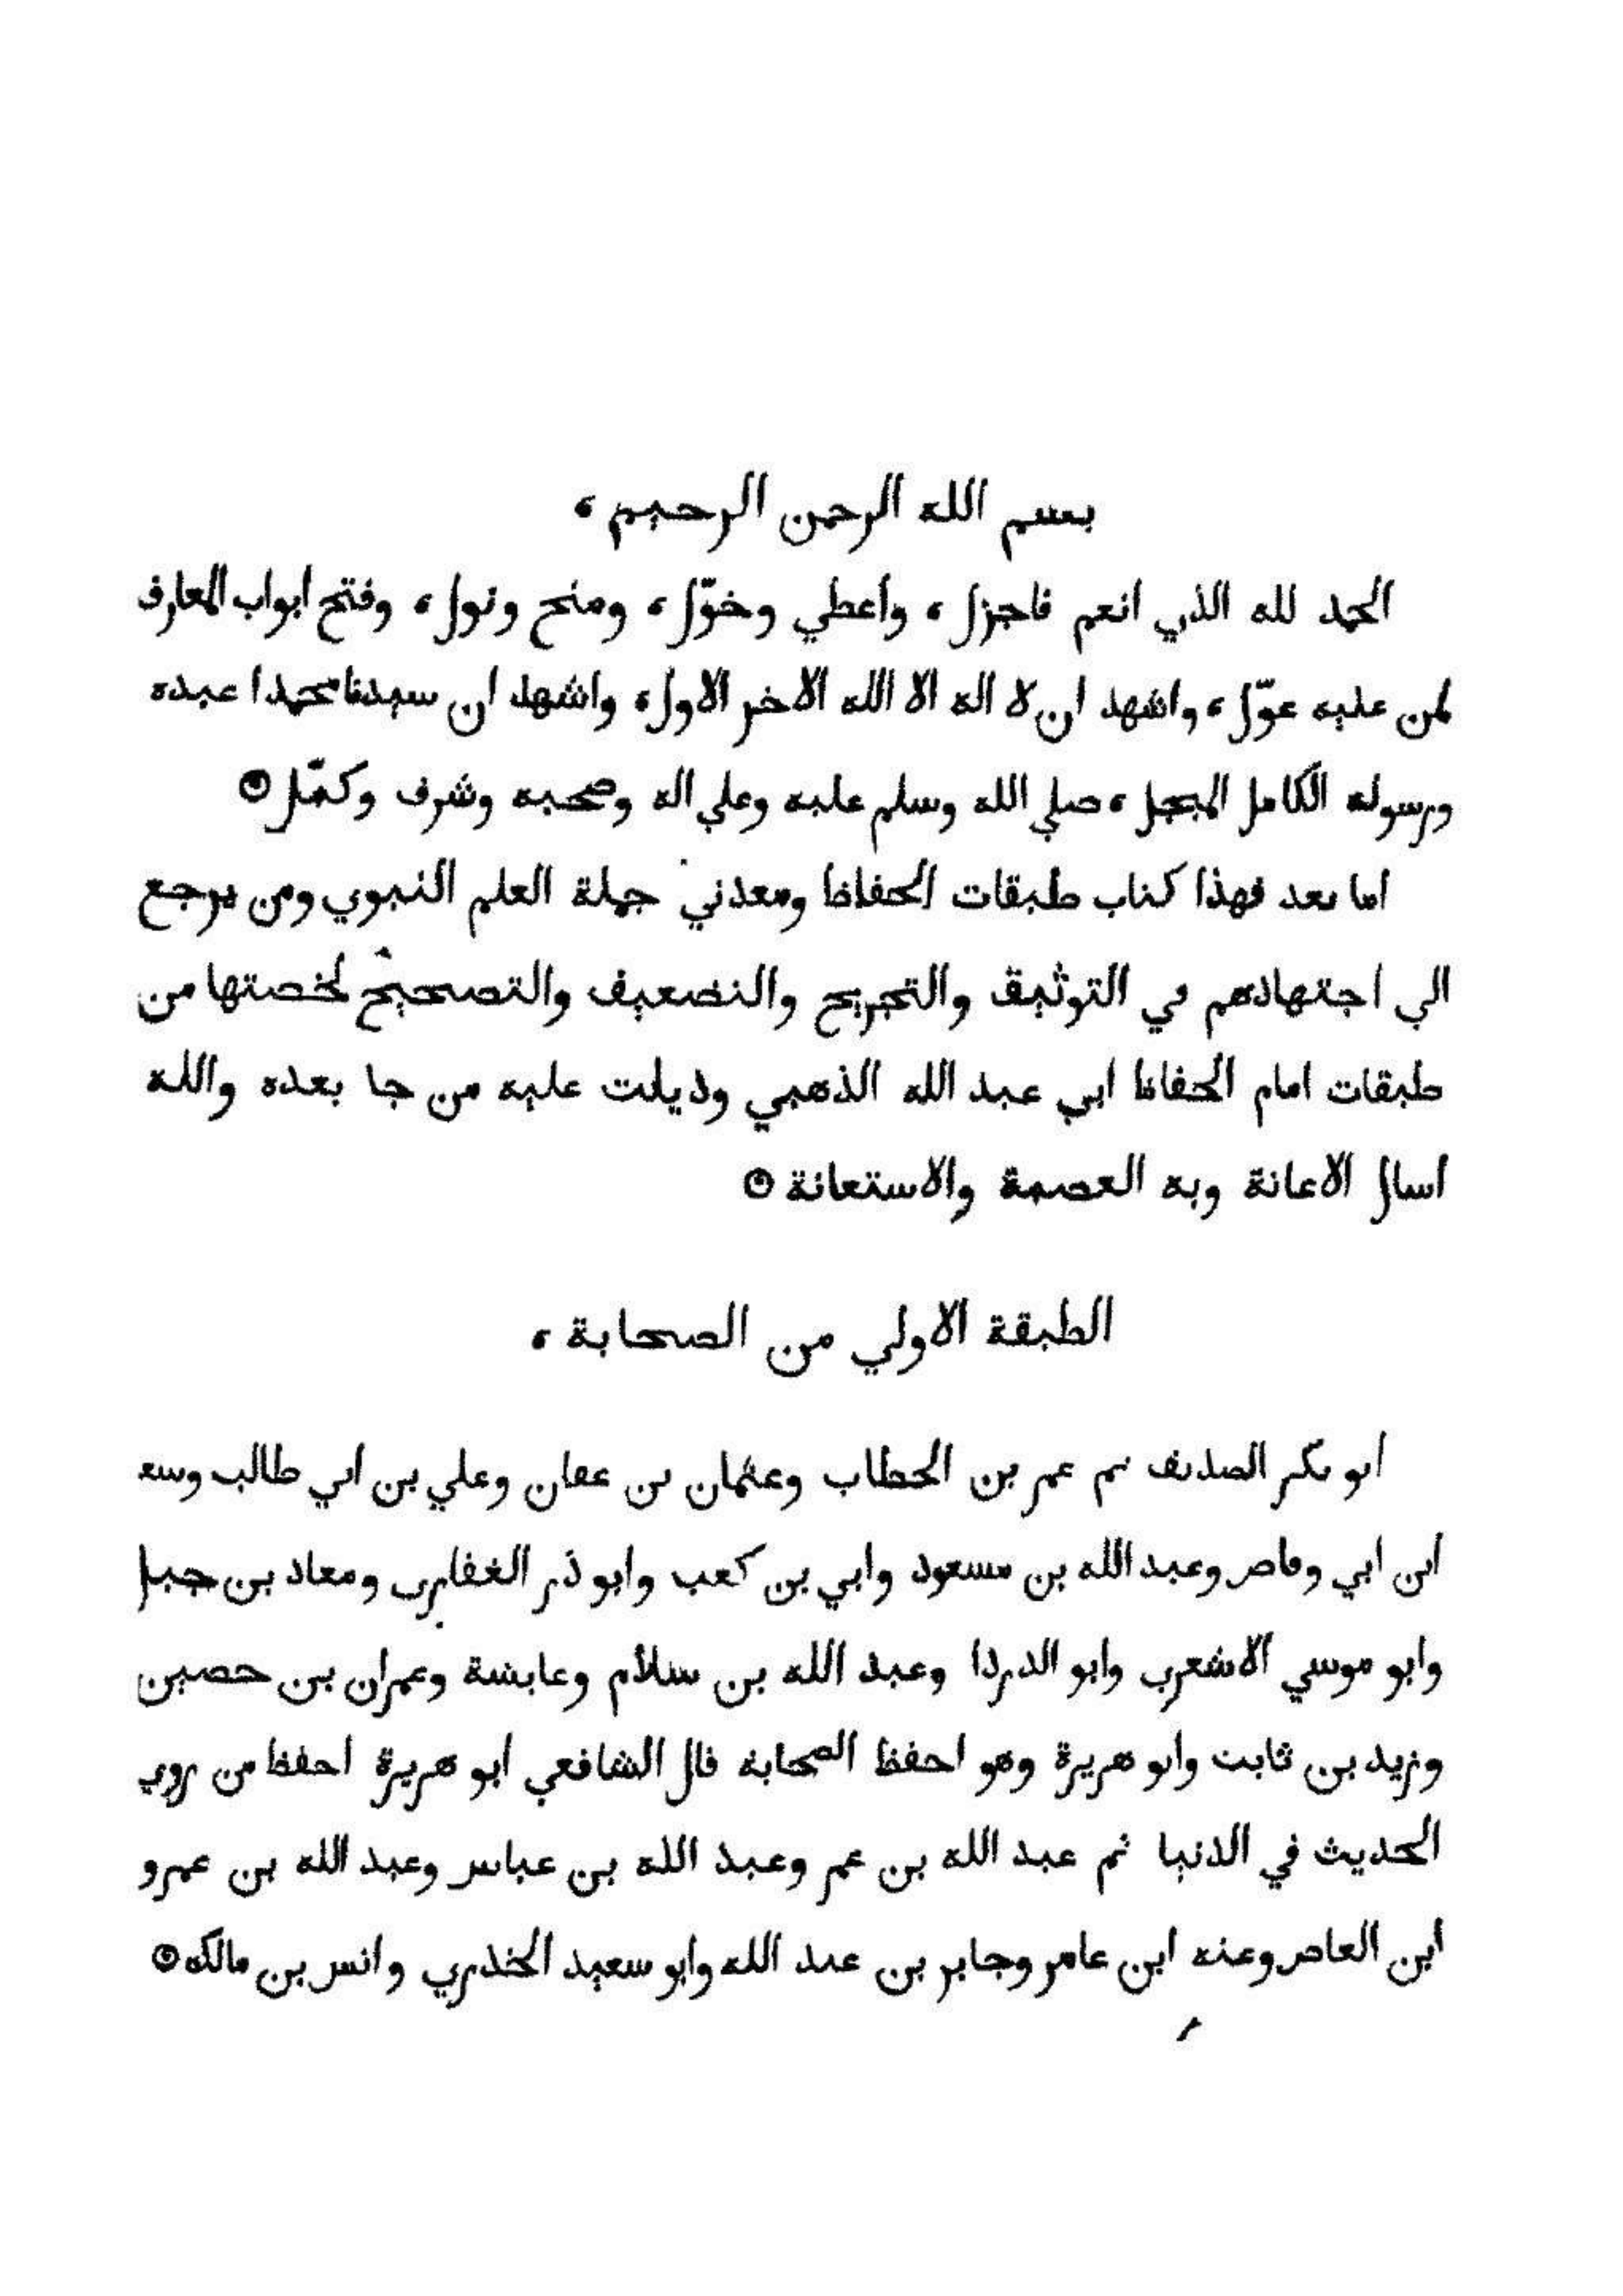 بسم الله الرحمن الرحيم ،
الحمد لله الذي انعم فاجزل ، واعطي وخوّل ، ومنح ونول ، وفتح ابواب المعارف
لمن عليه عوّل ، واشهد ان لا اله الا الله الاخر الاول ، واشهد ان سيدنا محمدا عبده
ورسوله الكامل المبجل ، صلي الله وسلم عليه وعلي اله وصحبه وشرف وكمّل ۞
اما بعد فهذا كتاب طبقات الحفاظ ومعدني جملة العلم النبوي ومن يرجع
الي اجتهادهم في التوثيق والتجريح والتضعيف والتصحيح لخصتها من
طبقات امام الحفاظ ابي عبد الله الذهبي وذيلت عليه من جا بعده والله
اسال الاعانة وبه العصمة والاستعانة ۞
الطبقة الاولي من الصحابة ،
ابو بكر الصديف ثم عمر بن الخطاب وعثمان بن عفان وعلي بن ابي طالب وسعد
ابن ابي وقاص وعبد الله بن مسعود وابي بن كعب وابو ذر الغفاري ومعاد بن جبل
وابو موسي الاشعري وابو الدردا وعبد الله بن سلام وعايشة وعمران بن حصين
وزيد بن ثابت وابو هريرة وهو احفظ الصحابة قال الشافعي ابو هريرة احفظ من روي
الحديث في الدنيا ثم عبد الله بن عمر وعبد الله بن عباس وعبد الله بن عمرو
ابن العاص وعنه ابن عامر وجابر بن عبد الله وابو سعيد الخدري وانس بن مالك ۞